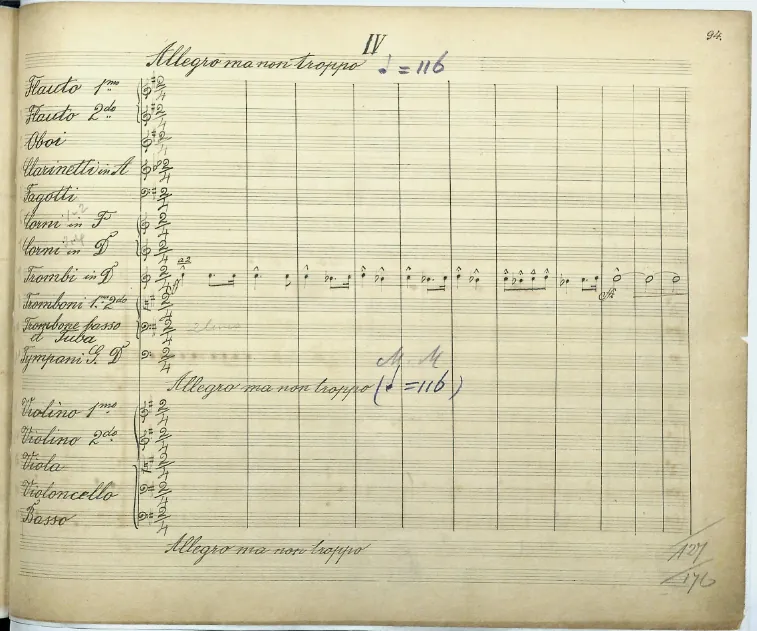 IV
94.
Allegro ma non troppo ♩=116
Flauto 1mo
Flauto 2do
Oboi
Clarinetti in A
Fagotti
Corni in F
Corni in D
Trombi in D
a2
ff
Tromboni 1mo 2do
Trombone basso
e Tuba
Tympani G. D
M.M
Allegro ma non troppo (♩=116)
Violino 1mo
Violino 2do
Viola
Violoncello
Basso
Allegro ma non troppo
127
176